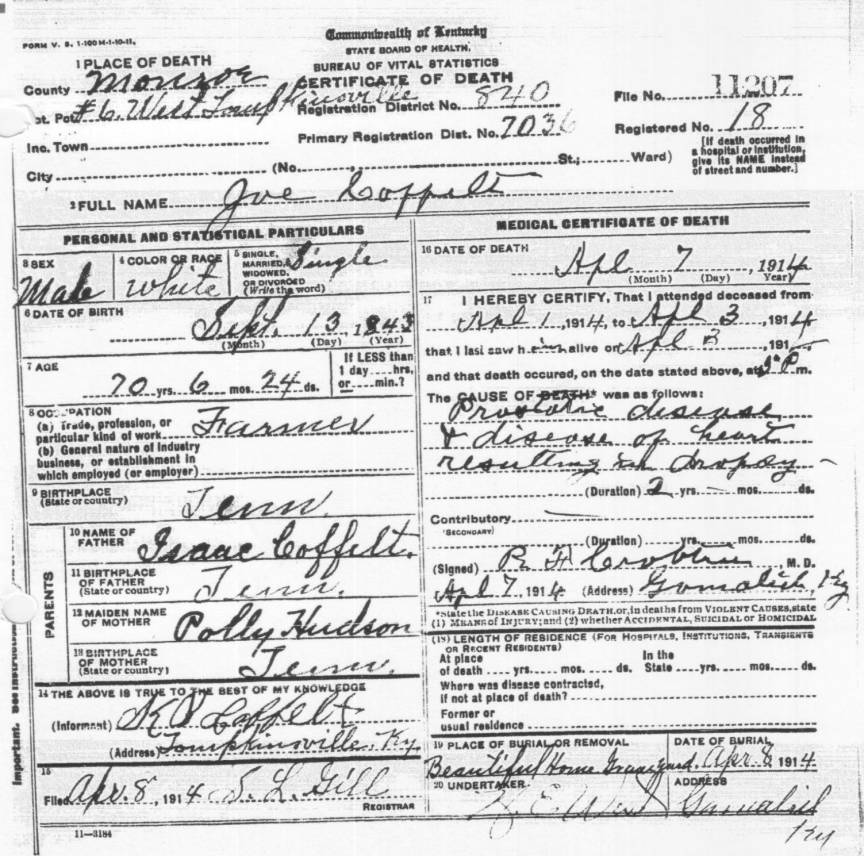 FORM V. S. 1-100M-1-10-11.
Commonwealth of Kentucky
STATE BOARD OF HEALTH.
BUREAU OF VITAL STATISTICS
CERTIFICATE OF DEATH
1 PLACE OF DEATH
County Monroe
ot. Pct #6 West Tompkinsville
Registration District No. 840
File No. 11207
Inc. Town
Primary Registration Dist. No. 7036
Registered No. 18
[If death occurred in a hospital or institution, give its NAME instead of street and number.]
City (No. St.; Ward)
2 FULL NAME Joe Coffelt
PERSONAL AND STATISTICAL PARTICULARS
3 SEX Male
4 COLOR OR RACE White
5 SINGLE, MARRIED, WIDOWED, OR DIVORCED (Write the word) Single
6 DATE OF BIRTH Sept. 13, 1843
(Month) (Day) (Year)
7 AGE 70 yrs. 6 mos. 24 ds.
If LESS than 1 day hrs. or min.?
8 OCCUPATION
(a) Trade, profession, or particular kind of work Farmer
(b) General nature of industry business, or establishment in which employed (or employer)
9 BIRTHPLACE (State or country) Tenn.
PARENTS
10 NAME OF FATHER Isaac Coffelt.
11 BIRTHPLACE OF FATHER (State or country) Tenn.
12 MAIDEN NAME OF MOTHER Polly Hudson
13 BIRTHPLACE OF MOTHER (State or country) Tenn.
14 THE ABOVE IS TRUE TO THE BEST OF MY KNOWLEDGE
(Informant) Coffelt
(Address) Tompkinsville Ky.
15
Filed Apr. 8, 1914 S. L. Gill
REGISTRAR
11-3184
MEDICAL CERTIFICATE OF DEATH
16 DATE OF DEATH Apl 7 1914
(Month) (Day) Year)
17 I HEREBY CERTIFY, That I attended deceased from
Apl 1, 1914, to Apl 3, 1914
that I last saw him alive on Apl 3, 191
and that death occured, on the date stated above, at P m.
The CAUSE OF DEATH* was as follows:
Prostatic disease
& disease of heart
resulting in dropsy
(Duration) 2 yrs. mos. ds.
Contributory
(SECONDARY)
(Duration) yrs. mos. ds.
(Signed) R F M. D.
Apl 7, 1914 (Address) Gamalich, Ky
*State the DISEASE CAUSING DEATH, or, in deaths from VIOLENT CAUSES, state
(1) MEANS OF INJURY; and (2) whether ACCIDENTAL, SUICIDAL OR HOMICIDAL
(18) LENGTH OF RESIDENCE (FOR HOSPITALS, INSTITUTIONS, TRANSIENTS OR RECENT RESIDENTS)
At place of death yrs. mos. ds.
In the State yrs. mos. ds.
Where was disease contracted, if not at place of death?
Former or usual residence
19 PLACE OF BURIAL OR REMOVAL
DATE OF BURIAL
Beautiful Home Graveyard. Apr. 8 1914
20 UNDERTAKER
ADDRESS
Gamalich
Ky
Important.